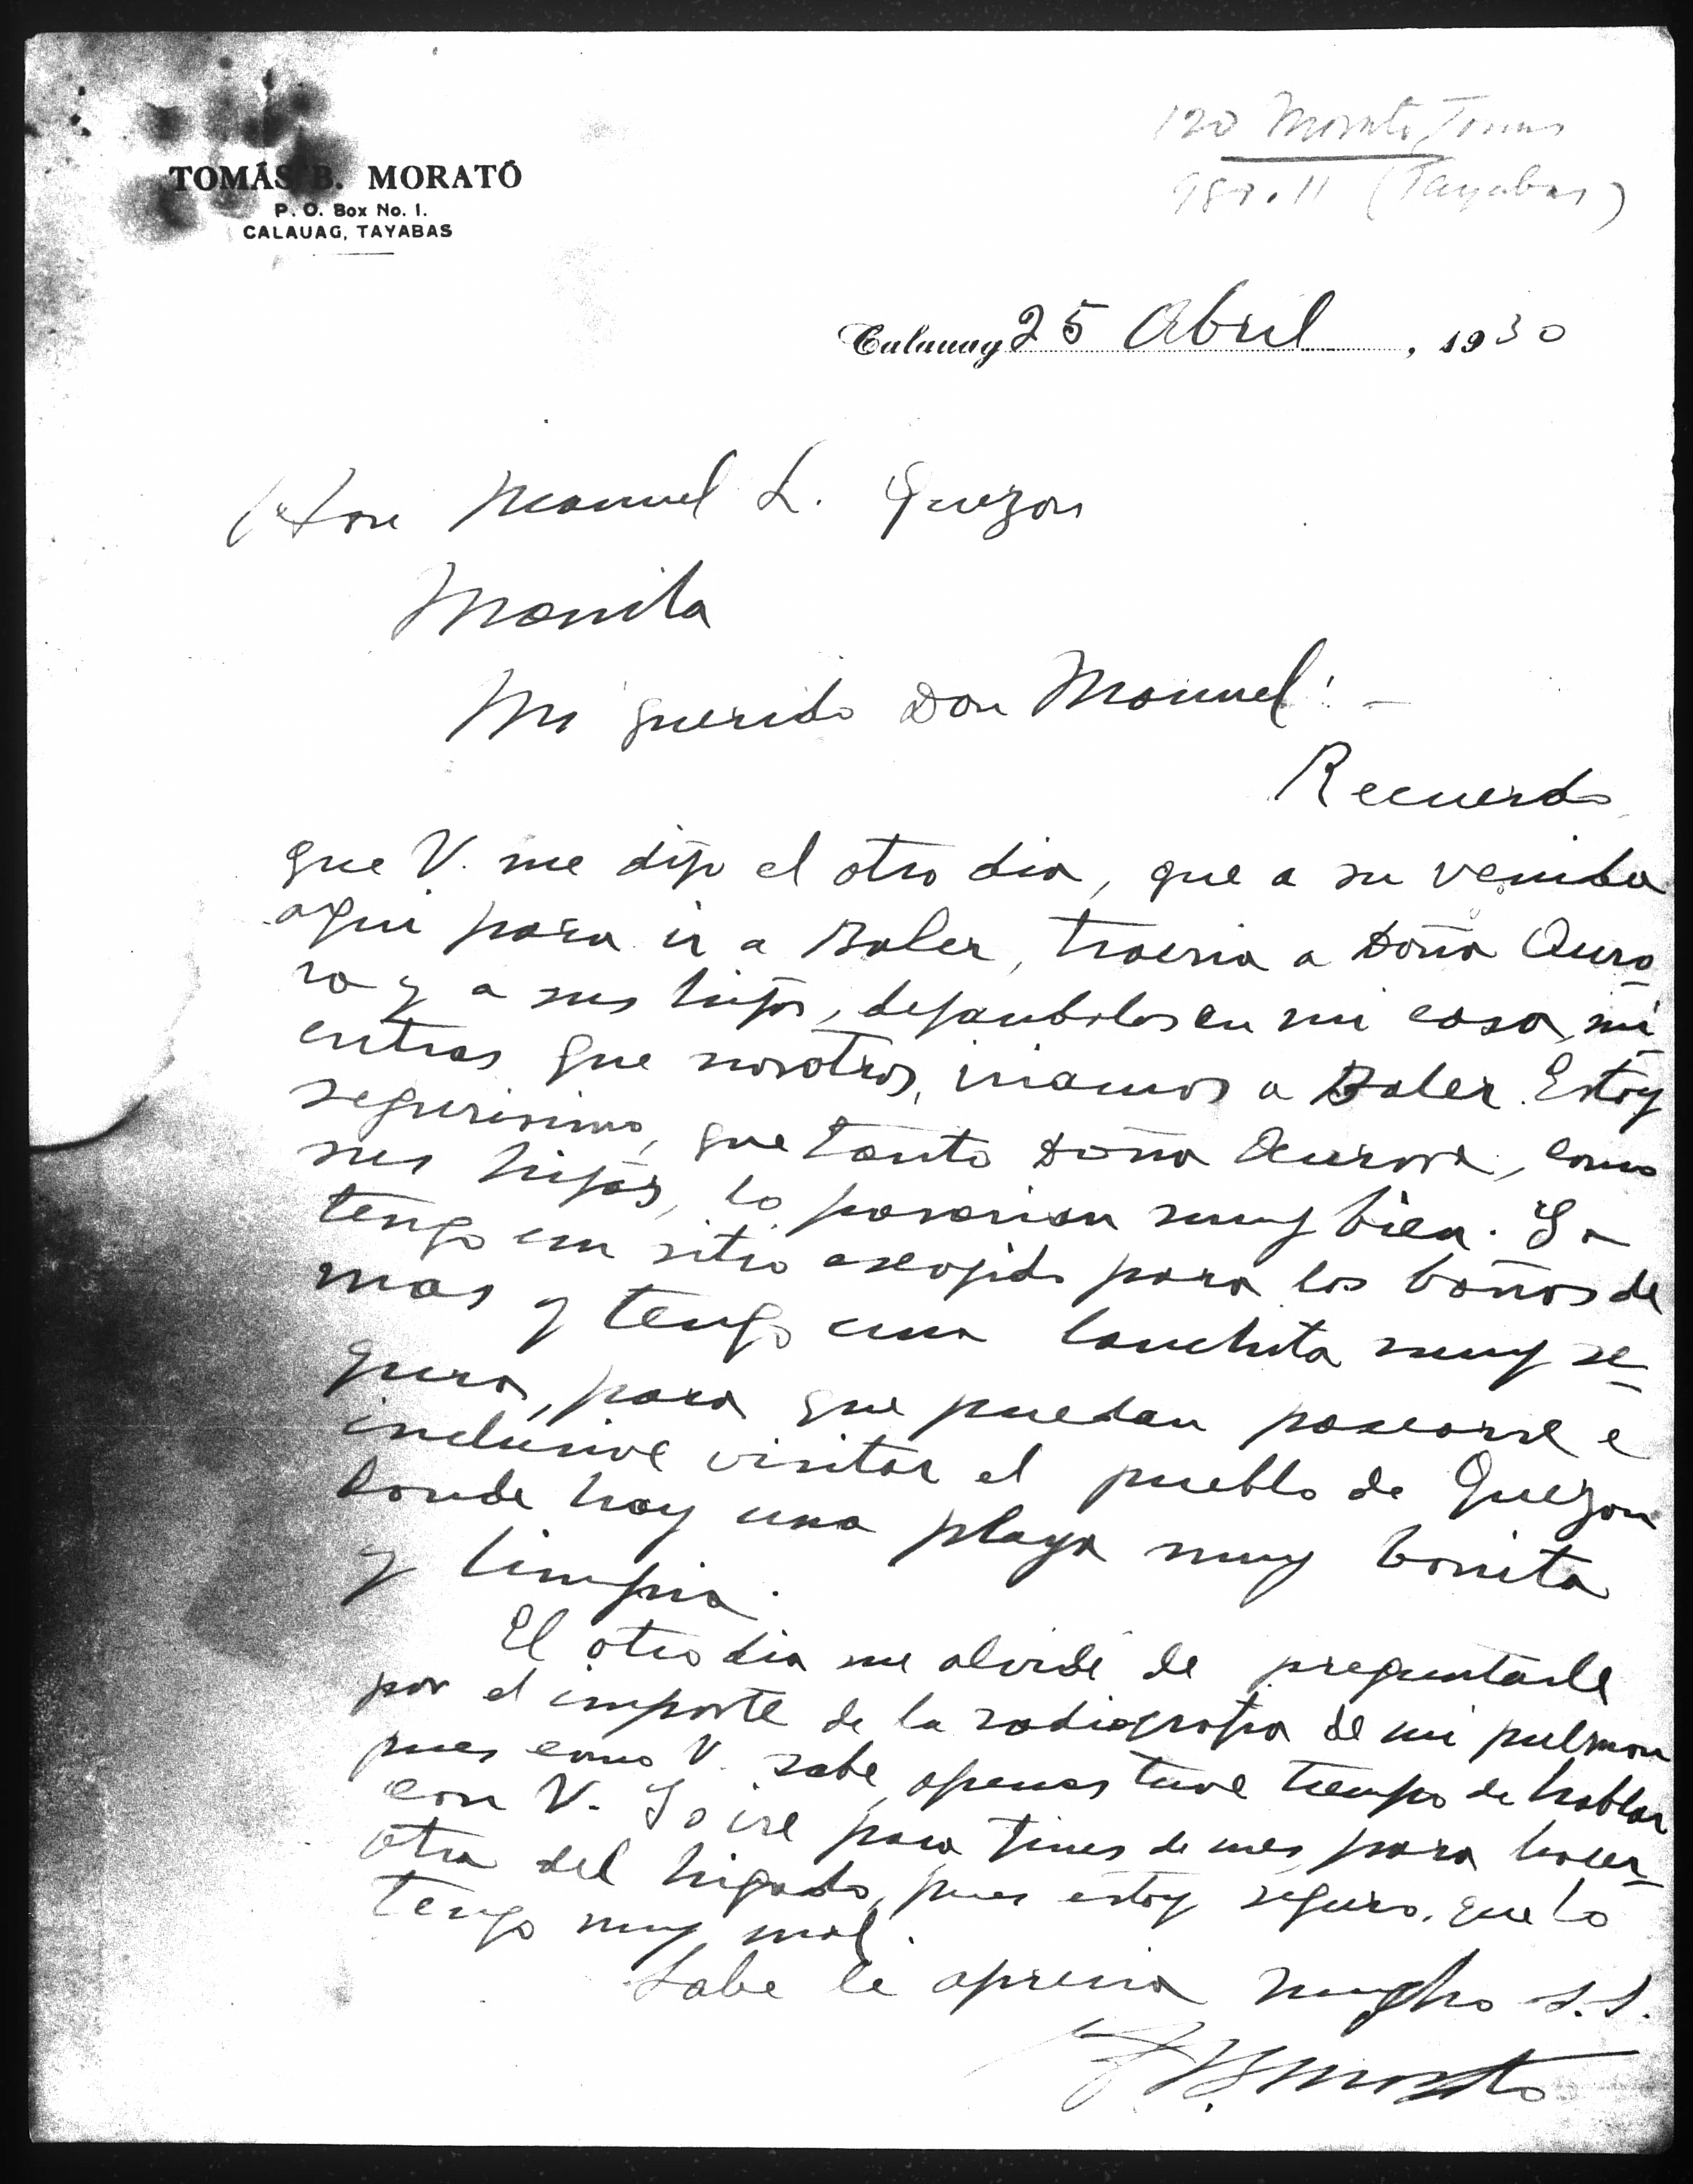 120 Morato, Tomas
(Tayabas)
TOMÁS B. MORATÓ
P. O. Box No. 1.
CALAUAG, TAYABAS
Calauag 25 Abril, 1930
Hon Manuel L. Quezon
Manila
Mi querido Don Manuel: -
Recuerdo
que V. me dijo el otro dia, que a su venida
aqui para ir a Baler, traeria a Doña Auro-
ra y a sus hijos, dejandolos en mi casa, mi-
entras que nosotros, iriamos a Baler. Estoy
segurisimo, que tanto Doña Aurora, como
sus hijos, lo pasarian muy bien. Ya
tengo un sitio escojido para los baños de
mar y tengo una lanchita muy se-
gura, para que puedan pasearse e
inclusive visitar el pueblo de Quezon
donde hay una playa muy bonita
y limpia.
El otro dia me olvidé de preguntarle
por el importe de la radiografia de mi pulmon
pues como V. sabe, apenas tuve tiempo de hablar
con V. Yo iré para fines de mes, para hacer-
otra del higado, pues estoy seguro, que lo
tengo muy mal.
Sabe le aprecia mucho s.s.
T.B. Morato